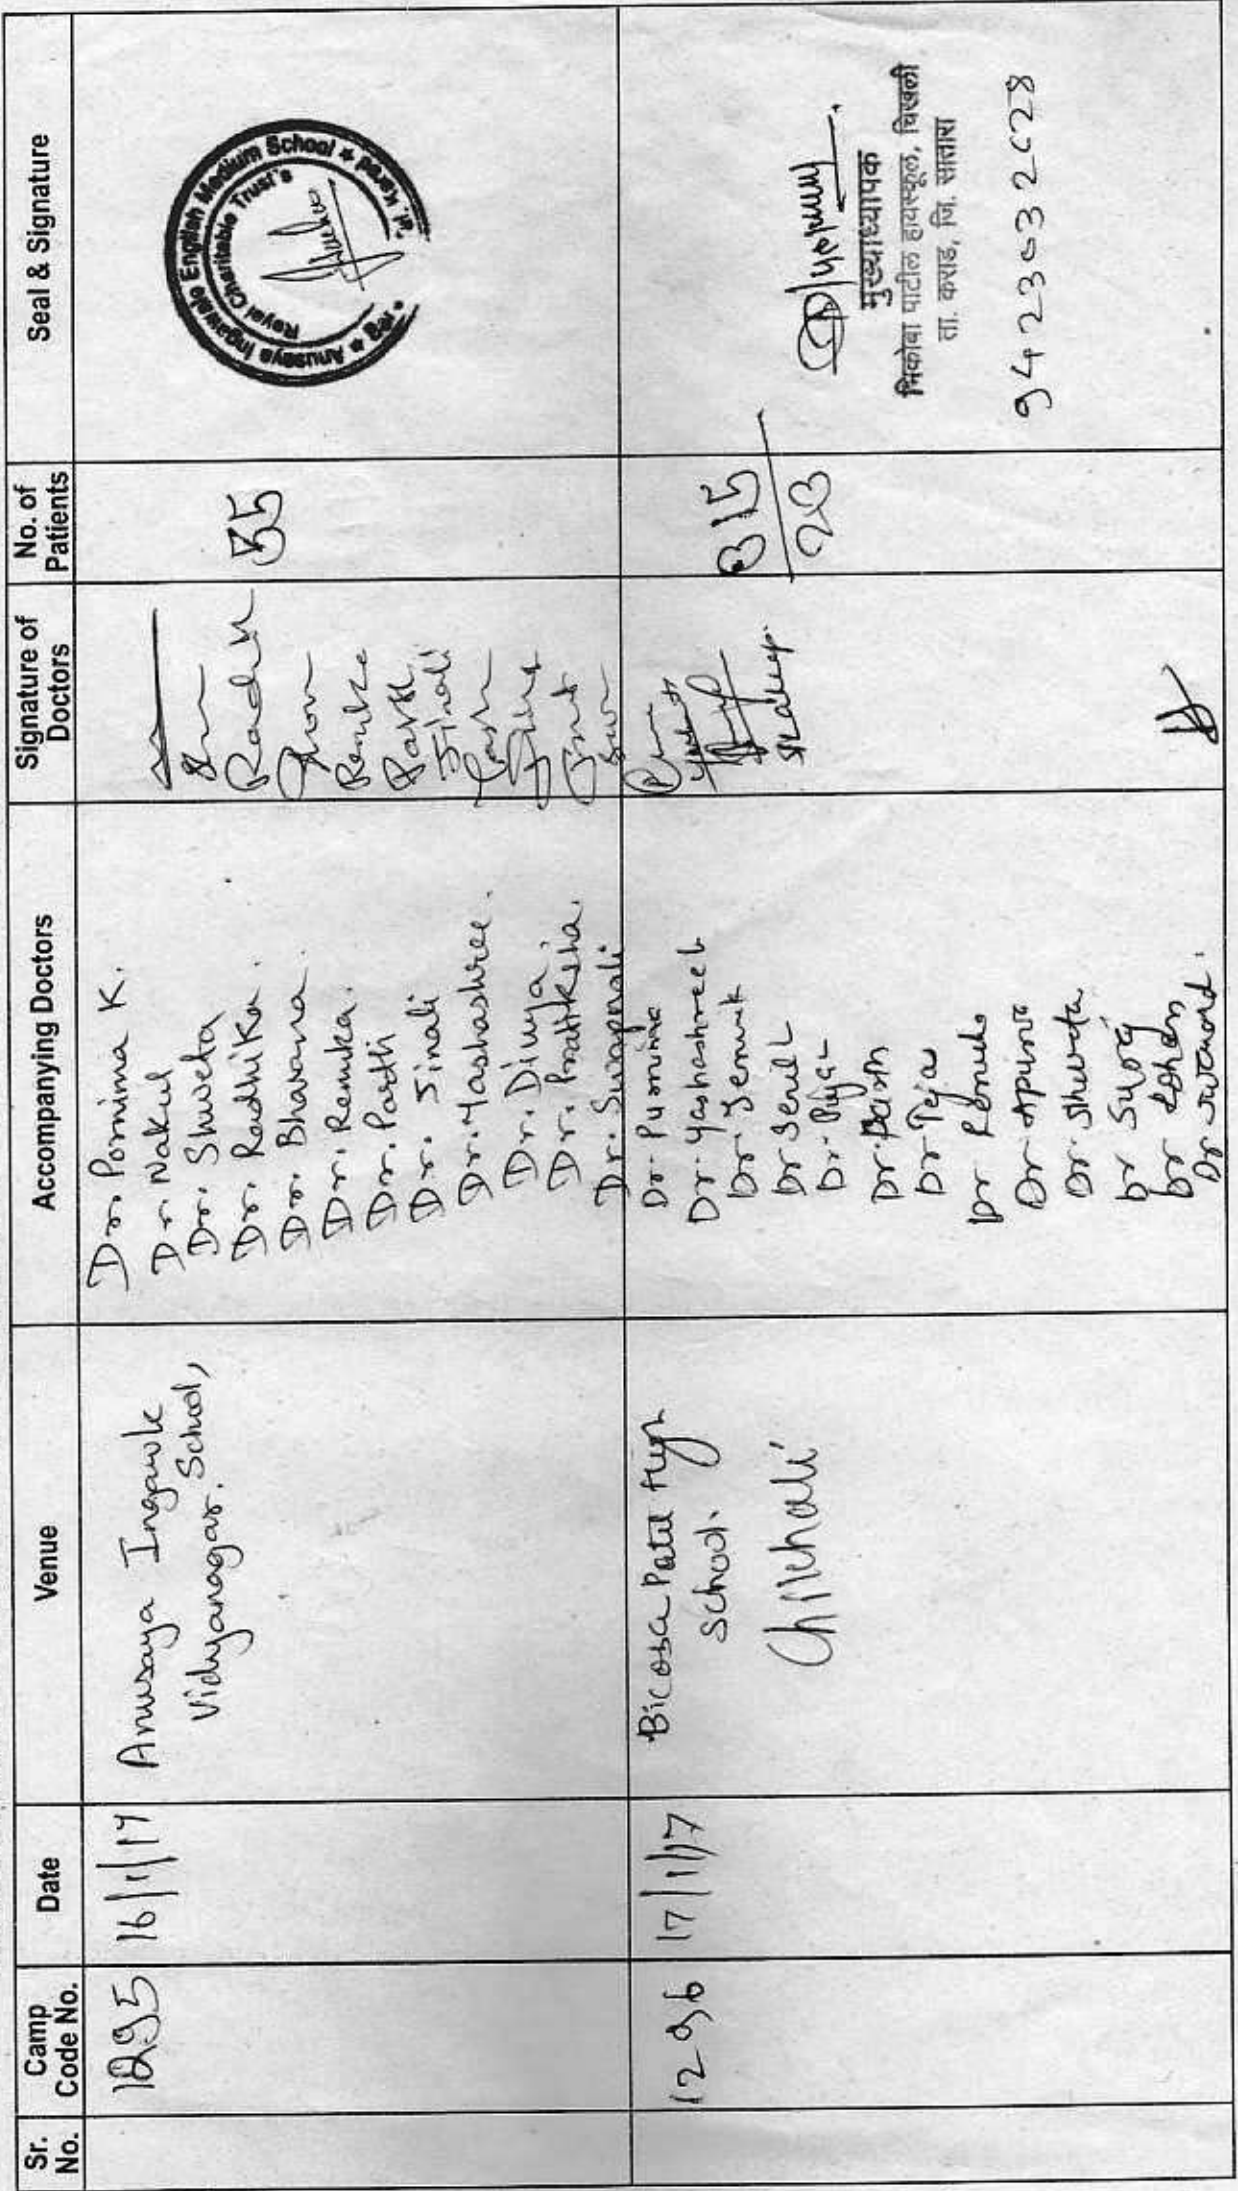 Sr. No.
Camp Code No.
Date
Venue
Accompanying Doctors
Signature of Doctors
No. of Patients
Seal & Signature
1295
16/1/17
Anusaya Ingawle
Vidyanagar. School,
Dr. Pornima K.
Dr. Nakul
Dr. Shweta
Dr. Radhika.
Dr. Bhavana.
Dr. Renuka.
Dr. Parth
Dr. Jinali
Dr. Yashashree.
Dr. Divya.
Dr. Pratiksha.
Dr. Swapnali
Radhi
Renuka
Parth
Jinali
55
Anusaya Ingawale English Medium School
Royal Charitable Trust's
Tal. Karad
1296
17/1/17
Bicoba Patil High
School.
Chikhali
Dr. Purnima
Dr. Yashashree
Dr.
Dr
Dr. Puja
Dr. Parth
Dr Teja
Dr Renuka
Dr. Apurva
Dr. Shweta.
Dr Suraj
Dr
Dr
315
23
मुख्याध्यापक
भिकोबा पाटील हायस्कूल, चिखली
ता. कराड, जि. सातारा
9423032028